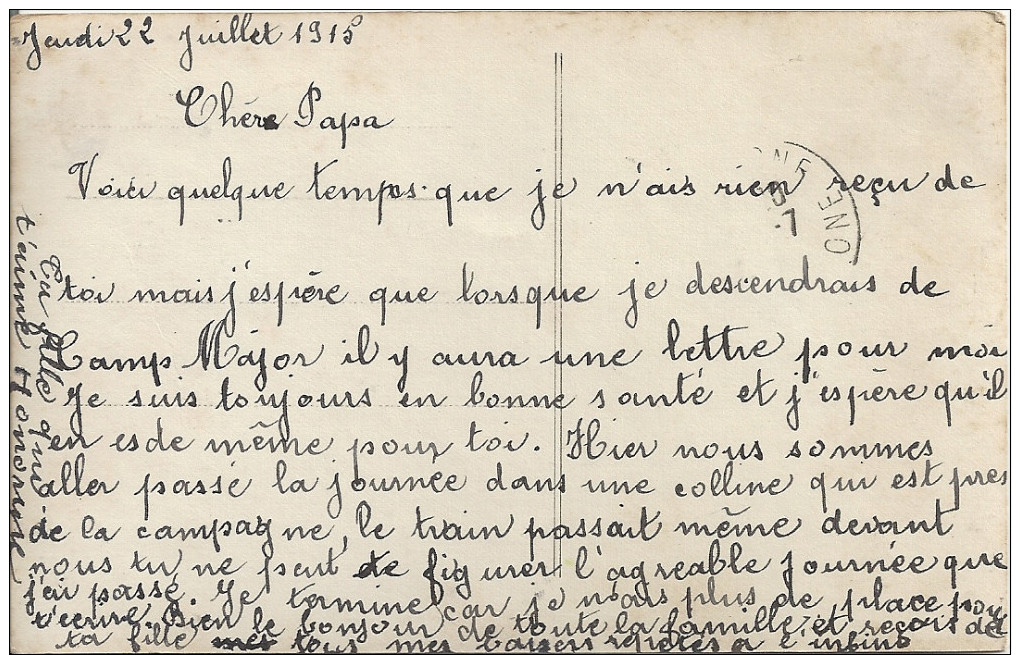 Jeudi 22 Juillet 1915
Chère Papa
Voici quelque temps que je n'ais rien reçu de
toi mais j'espère que lorsque je descendrais de
Camp Major il y aura une lettre pour moi
Je suis toujours en bonne santé et j'espère qu'il
en es de même pour toi. Hier nous sommes
aller passé la journée dans une colline qui est pres
de la campagne, le train passait même devant
nous tu ne peut te figurer l'agreable journée que
j'ai passé. Je termine car je n'ais plus de place pour
t'ecrire Bien le bonjour de toute la famille et reçois de
ta fille tous mes baisers répétés a l'infini
Ta fille qui
t'aime Honorine
ONE